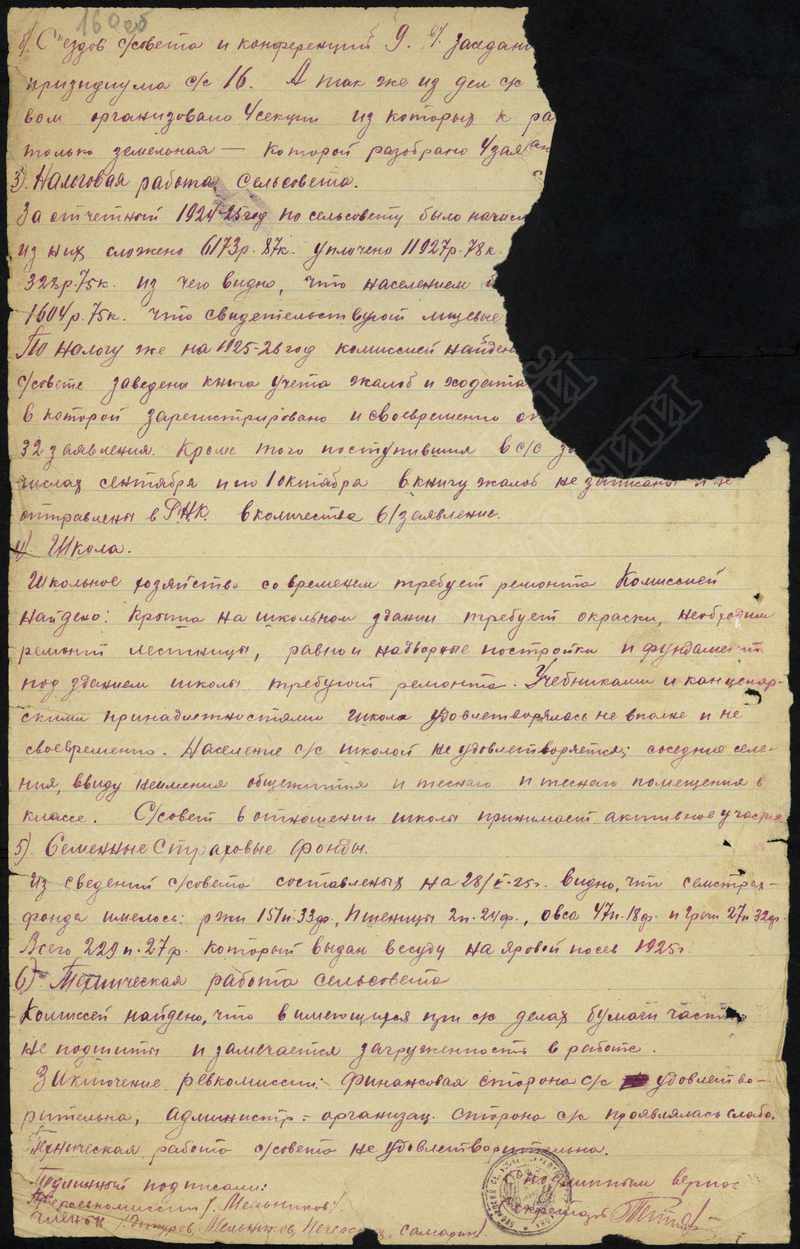 16 об
б) С'ездов с/совета и конференций 9. в). заседани
призидиума с/с 16. А так же из дел с/с
вом организовано 4 секции из которых к ра
только земельная — которой разобрано 4 зая
3). Налоговая работа Сельсовета.
За отчетный 1924-25 год по сельсовету было начисл
из них сложено 6173р. 87к. уплочено 11927р. 78к.
322р. 75к. из чего видно, что населением
1604р. 75к. что свидетельствуют лицевые
По налогу же на 1925-26 год комиссией найден
с/совете заведена книга учета жалоб и ходата
в которой зарегистрировано и своевременно
32 заявления. Кроме того поступивших в с/с
числах сентября и по 1 октября в книгу жалоб не записаны и не
отправлены в РНК в количества 61 заявление.
4) Школа.
Школьное хозяйство со временем требует ремонта Комиссией
найдено: крыша на школьном здании требует окраски, необходим
ремонт лестницы, равно и надворные постройки и фундамент
под зданием школы требуют ремонта. Учебниками и канцеляр-
скими принадлежностями школа удовлетворялась не вполне и не
своевременно. Население с/с школой не удовлетворяется; соседние селе-
ния, ввиду неимения общежития и тесного и тесного помещения в
классе. С/совет в отношении школы принимает активное участие
5). Семенные Страховые фонды.
Из сведений с/совета составленых на 28/X-25г. видно, что семстрах-
фонда имелось: ржи 151п. 33ф., Пшеницы 2п. 24ф., овса 47п. 18ф. и гречи 27п. 32ф.
Всего 229п. 27ф. который выдан в ссуду на яровой посев 1925г.
6) Техническая работа сельсовета
Комиссей найдено, что в имеющихся при с/с делах бумаги частью
не подшиты и замечается загруженность в работе.
Заключение ревкомиссии: финансовая сторона с/с удовлетво-
рительна, администр: организац. сторона с/с проявлялась слабо.
Техническая работа с/совета не удовлетворительна.
Подлинный подписали:
С подлинным верно
Предревкомиссии / Мельников /
Секретарь
члены / Мельников, Самарин /